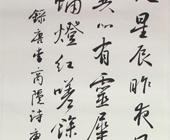 星辰昨夜
心有靈犀
蠟燈紅嗟餘
錄唐李商隱詩庚